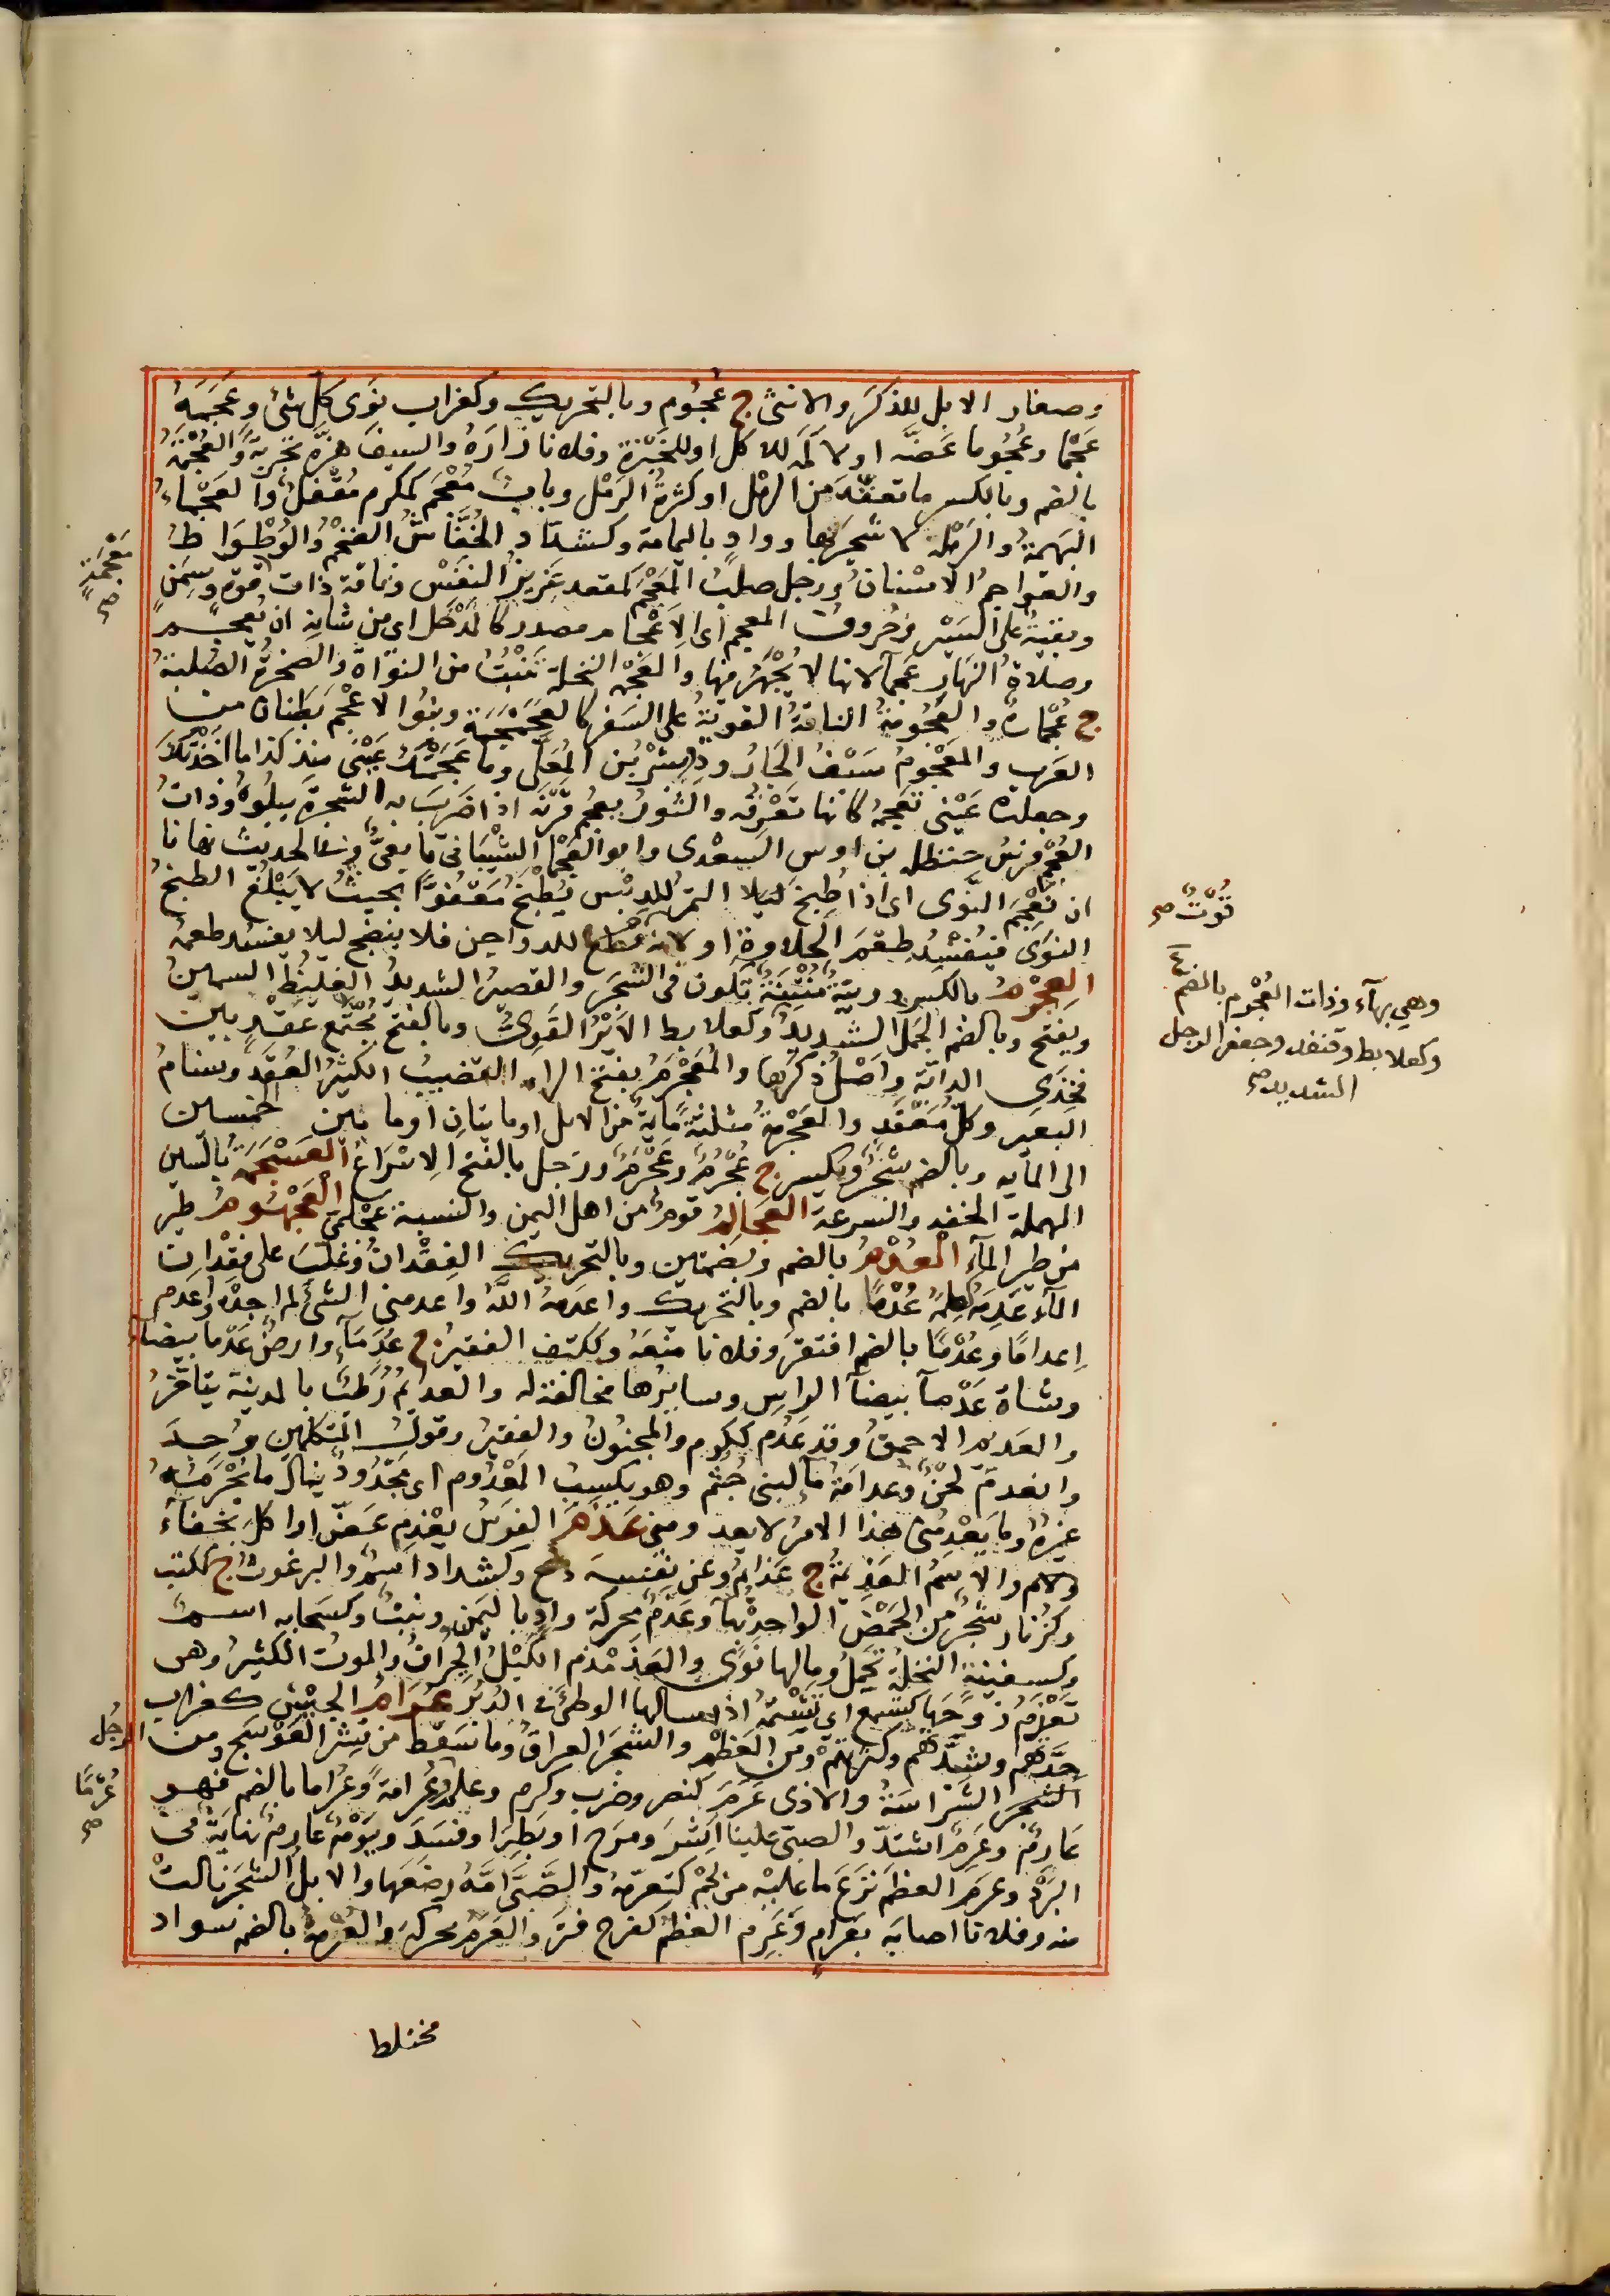 وصغار الابل للذكر والانثى ج عُجُوم وبالتحريك وكغراب نَوَى كل شئ وعَجَمَهُ
عَجْمًا وعُجُوما عَضَّه او لاكه للاكل او للخبرة وفلانا رازَهُ والسيفَ هَزَّه تجربةً والعُجْمَةُ
بالضم وبالكسر ما تعقَّدَ من الرمل او كثرةُ الرَمْل وبابٌ مُعْجَم كمكرم مُقْفَلٌ والعَجْماءُ
البَهيمةُ والرَمْلة لا شجرَ بها ووادٍ باليمامة وكشدّاد الخُفَّاشُ الضخمُ والوُطْوَاطُ
والعَواجِمُ الاسْنانُ ورجل صلبُ المَعْجَم كمقعد عَزيزُ النفس وناقة ذات قوة وسِمَنٍ
وبقيةٌ على السَيْر وحُروفُ المعجم اى الاِعْجام مصدر كالمُدْخَل اى من شانِه ان يُعجم
وصلاةُ النَهارِ عَجمآ لانها لا يُجْهَرُ فيها والعَجْمة النخلة تَنْبُتُ من النَوَاة والصخرةُ الصُلبةُ
ج عَجَمات والعَجُومَةُ الناقةُ القويةُ على السَفر كالعَجَمْجَمَة وبنُوا الاعْجَم بَطنان من
العَرب والمَعْجومُ سَيْفُ الجَارُودِ بِشْر بن المُعَلَّى وما عَجَمَتْكَ عَيْنى منذ كذا ما اَخَذَتْكَ
وجعلت عَيْنى تَعجمه كانها تَعْرِفه والثَورُ يعجم قَرْنَه اذا ضَرَبَ به الشجرةَ يبلُوهُ وذاتُ
العُجْم فرسُ حنظلة بن اوس السَعْدى وابو العَجْما الشَيْبَانىّ تابعىّ وفى الحديث نهانا
ان نَعْجُمَ النَوَى اى اذا طُبِخَ ليلا التمرُ للدِبْس يُطْبَخُ مَعَفْوًا بحيثُ لا يَبْلُغُ الطبخُ
النَوَى فيُفْسِدُ طَعْمَ الحلاوة او لانه للدواجن فلا ينضج ليلا يفسد طعمه
العجرم بالكسر دويبّة تكون فى الشجر والقصيرُ الشديدُ الغليظُ السمينُ
ويفتح وبالضم الجَملُ الشديدُ وكعلابط الاَيْرُ القَوِىُّ وبالفتح مُجْتَمع عَقْدٍ بين
فخذى الدابّة واَصْلُ ذكَرِها والمُعَجْرَمُ بفتح الراء القضيبُ الكثيرُ العُقَد وسنامُ
البعير وكلّ مُعَقَّد والعَجْرَمة مثلثةً مايةٌ من الابل او مايتانِ او ما بين خمسين
الى المايه وبالضم شجر ويكسر ج عُجْرُم وعِجْرِم ورَجل بالفتح الاِسْرَاعُ العَسْجَمة بالسين
المهملة الخفة والسرعة العَجالِم قومٌ من اهل اليمن والنسبة عَجْلَمىّ العَجْهُوم طير
من طير المآء العُدْمُ بالضم وبضمتين وبالتحريك الفِقْدانُ وغَلَبَ على فِقْدان
المال عَدِمَه كعلمه عُدْمًا بالضم وبالتحريك واَعدَمه اللّهُ واعدمنى الشئ لم اجدْه واَعدم
اِعدامًا وعُدْمًا بالضم افتقر وفلانا منَعَهُ وككتف الفقير ج عُدَمآء وارضٌ عَدْما بيضاءُ
وشاة عَدْمآ بيضآ الراس وسايرُها مخالفٌ له والعدايمُ رُطَبٌ بالمدينة يتاخّرُ
والعديم الاحمقُ وقد عَدُمَ ككرم والمجنُونُ والفقيرُ وقولُ المتكلمين وُجِدَ
وانعدمَ لَحْنٌ وعدامَةُ مآ لبنى جُشَم وهو يكسِبُ المَعْدُوم اى مَجْدُودٌ ينال ما يُحْرَمُه
غيرهُ وما يَعْدِمُنى هذا الامرُ لا يعدونى عَذَمَ الفرسُ يعْذِم عَضَّ او اكلَ بجفآء
ولام والاِسْمُ العَذيمةُ ج عَذايم وعن نفسه دفع وكشداد اسمٌ والبرغوثُ ج ككتب
وكزُنار شَجَرٌ من الحَمْض الواحدة بهآ وعَذَمٌ محركة وادٍ باليَمَن ونبتٌ وكسحابه اسمٌ
وكسفينة النخلةُ تَحمِلُ وما لها نوًى والعَذَمْذَم الكَيْلُ الجُزافُ والموتُ الكثيرُ وهى
تَعْذِمُ زوجَها كيسمع اى تَشْتِمُهُ اذا سالها الوطئ فى الدُبُر عُرامُ الجَيْش كغراب
حِدَّتُهم وشدَّتهم وكثرتهمْ ومن العَظْم والشجر العراقُ وما سَقَط من قِشْر العَوْسَج ومن
الشجر الشَرَاسَةُ والاذى عَرَمَ كنصر وضرب وكرم وعلم عُرامةً وعُراما بالضم فهو
عَارِمٌ وعَرِمٌ اشتدّ والصبىّ علينا اَشِرَ ومَرِحَ او بَطِرَ او فسَدَ ويَوْمٌ عارِمٌ نهايةٌ فى
البَرْد وعرم العظمَ نَزَعَ ما عليْه من لَحْم كتعرّمه والصَبىّ امَّهُ رضَعَها والابلُ الشجَرَ نالتْ
منه وفلانا اصابَه بعُرام وعَرِم العظمُ كفرح قَتَر والعَرَمُ محركة والعُرْمةُ بالضم سواد
مَعْجَمَةٍ صح
قُوِّتَ صح
وهى بهآء وذات العُجْرم بالضم ع
وكعلابط وقنفد وجعفر الرجل
الشديد صح
الرجُل
عُرْمًا صح
مختلط